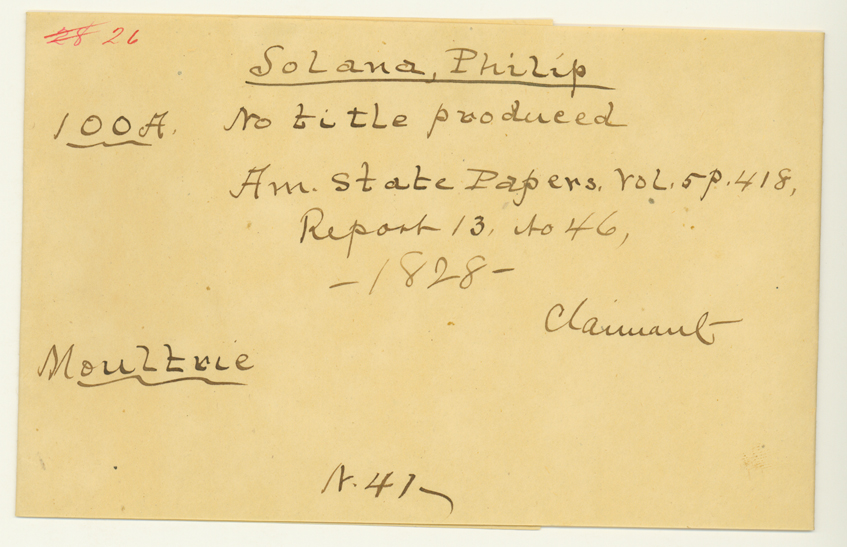 28 26
Solana, Philip
100A. No title produced
Am. State Papers. Vol. 5 p. 418,
Report 13, to 46,
-1828-
Claimant
Moultrie
N. 41